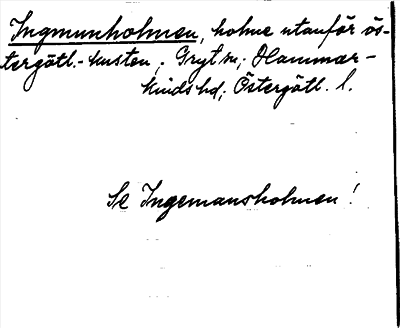 Ingmunholmen, holme utanför ös-
tergötl.-kusten; Gryt sn; Hammar-
kinds hd; Östergötl. l.
Se Ingemansholmen!